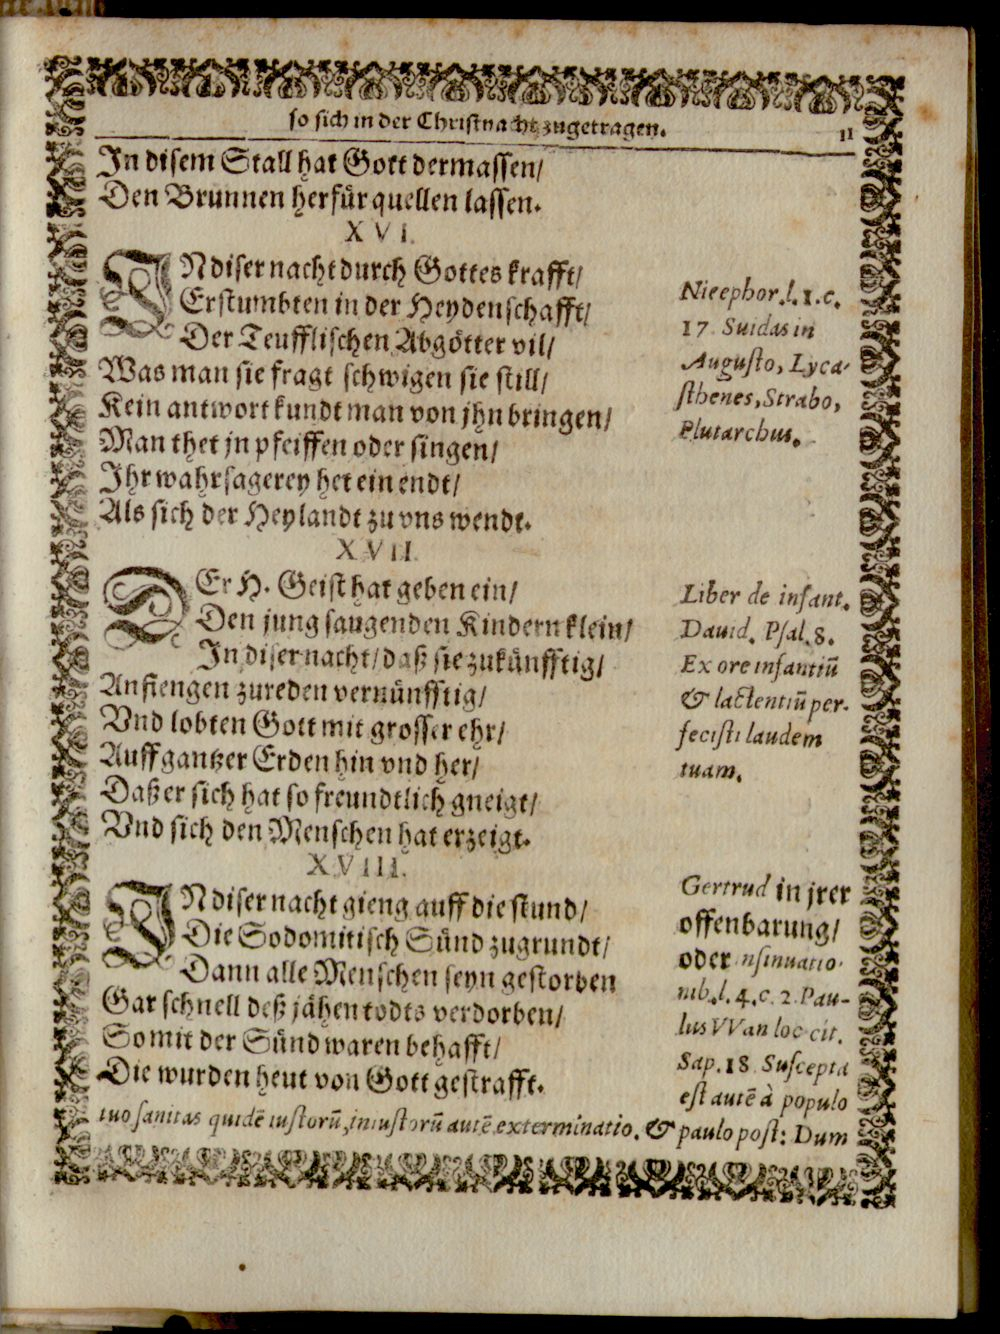 so sich in der Christnacht zugetragen. 11
In disem Stall hat Gott dermassen/
Den Brunnen herfür quellen lassen.
XVI.
INdiser nacht durch Gottes krafft/
Erstumbten in der Heydenschafft/
Der Teufflischen Abgötter vil/
Was man sie fragt schwigen sie still/
Kein antwort kundt man von jhn bringen/
Man thet jn pfeiffen oder singen/
Ihr wahrsagerey het ein endt/
Als sich der Heylandt zu vns wendt.
Nieephor. l. 1. c.
17. Suidas in
Augusto, Lyca-
sthenes, Strabo,
Plutarchus.
XVII.
DEr H. Geist hat geben ein/
Den jung saugenden Kindern klein/
In diser nacht/ daß sie zukünfftig/
Anfiengen zureden vernünfftig/
Vnd lobten Gott mit grosser ehr/
Auff gantzer Erden hin vnd her/
Daß er sich hat so freundtlich gneigt/
Vnd sich den Menschen hat erzeigt.
Liber de infant.
Dauid. Psal. 8.
Ex ore infantiū
& lactentiū per-
fecisti laudem
tuam.
XVIII.
INdiser nacht gieng auff die stund/
Die Sodomitisch Sünd zugrundt/
Dann alle Menschen seyn gestorben
Gar schnell deß jähen todts verdorben/
So mit der Sünd waren behafft/
Die wurden heut von Gott gestrafft.
Gertrud in jrer
offenbarung/
oder nsinuatio-
nib. l. 4. c. 2. Pau-
lus VVan loc cit.
Sap. 18 Suscepta
est autē à populo
tuo sanitas quidē iustorū, iniustorū autē exterminatio. & paulo post: Dum